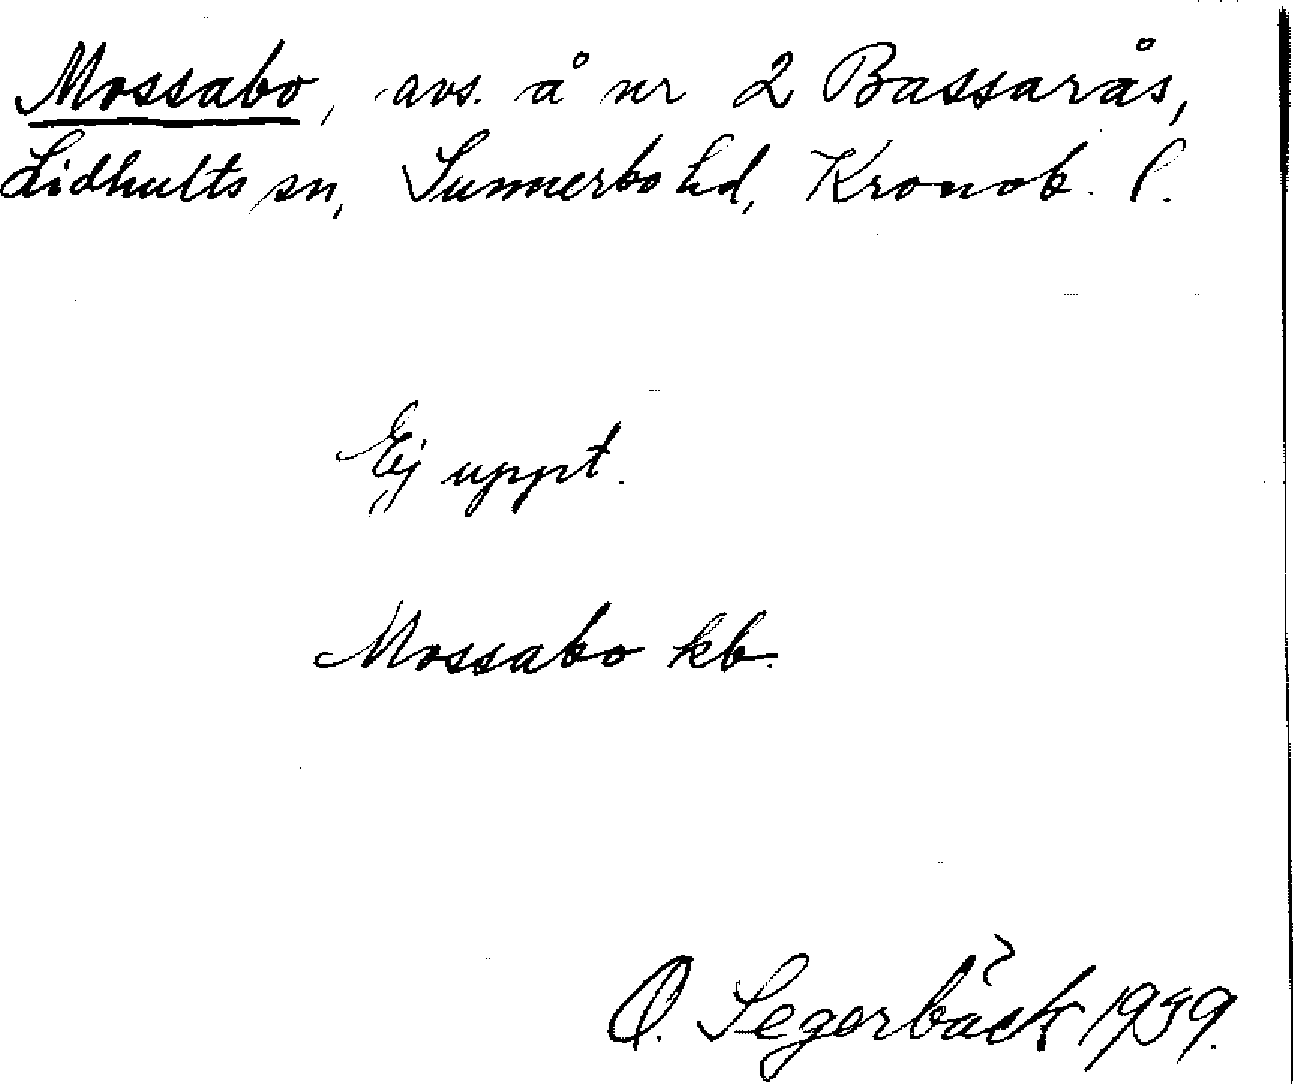 Mossabo, avs. å nr 2 Bassarås,
Lidhults sn, Sunnerbo hd, Kronob. l.
Ej uppt.
Mossabo kb.
O. Segerbäck 1939.